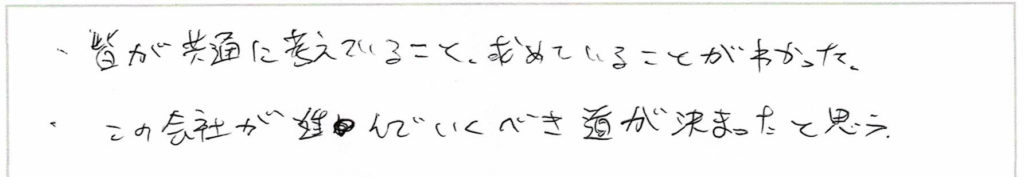 ・皆が共通に考えていること、求めていることがわかった。
・この会社が進んでいくべき道が決まったと思う。